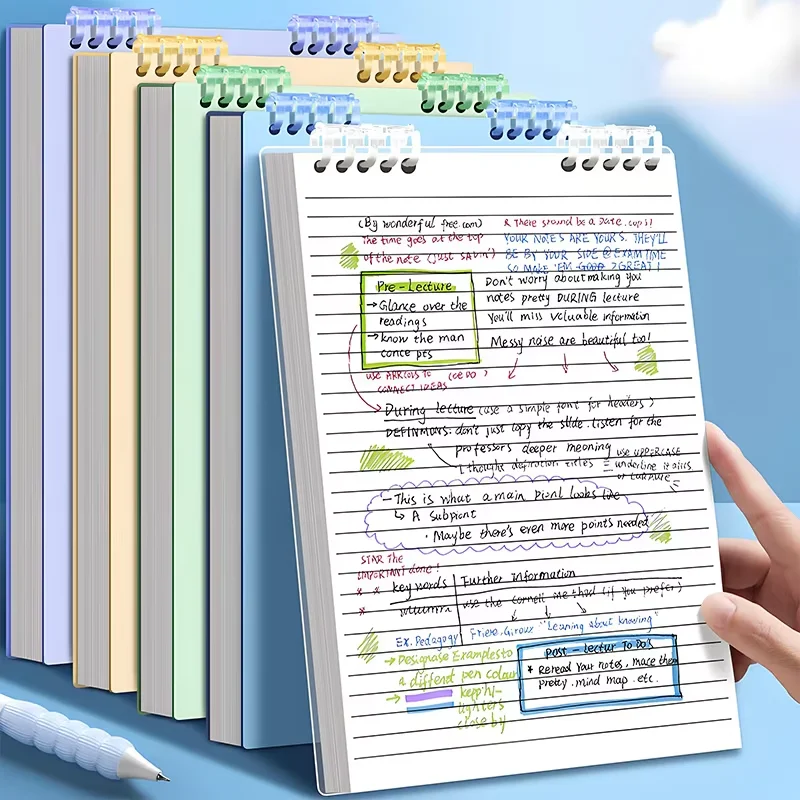 (By wonderful free.com)
The time goes at the top
of the note (just sayin')
& There should be a Date. cops!
YOUR NOTES ARE YOURS. THEY'LL
BE BY YOUR SIDE @ EXAM TIME
SO MAKE 'EM GOOD GREAT!
Pre-Lecture
→ Glance over the
readings
→ know the man
conce pts
Don't worry about making you
notes pretty DURING lecture
You'll miss valuable information
Messy noise are beautiful too!
USE ARROWS TO
CONNECT IDEAS
During lecture (use a simple font for headers)
don't just copy the slide. listen for the
professors deeper meaning
use UPPERCASE
underline it
- This is what a main looks like
↳ A subpiont
· Maybe there's even more points needed
STAR The
IMPORTANT done!
* * key words
Further Information
*
use the cornell me thod (if you prefer)
Ex. Pedagogy
Friere, Giroux "Leaning about knowing"
→ Designase Examplesto
a differet pen colour
→ kepp hi-
lighters
close by
Post - lectur To Do's
* Reread Your notes, mace them
pretty .mind map .etc.